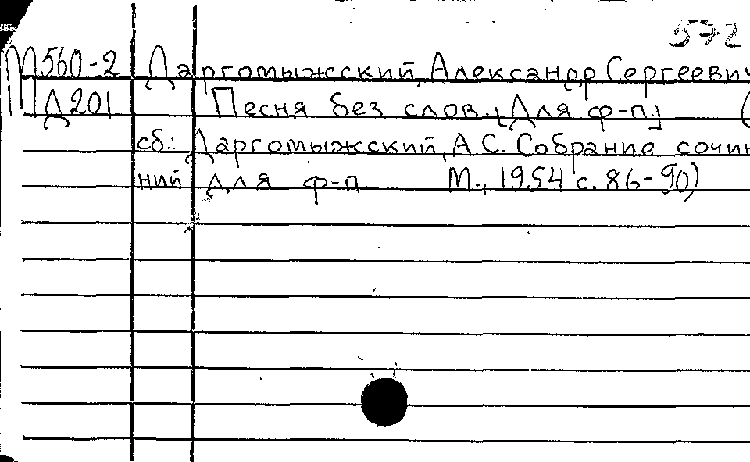 572
М560-2 Даргомыжский, Александр Сергеевич
Д201 Песня без слов. [Для ф-п.] (
сб.: Даргомыжский, А.С. Собрание сочин
ний для ф-п М., 1954 с. 86-90)